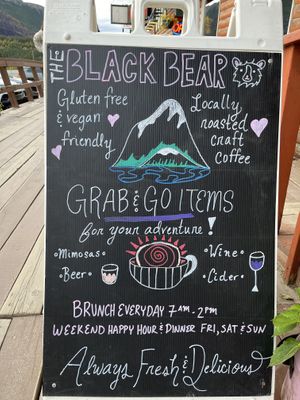 THE BLACK BEAR
Gluten free
& vegan
friendly
Locally
roasted
craft
Coffee
GRAB & GO ITEMS
for your adventure!
• Mimosas •
Beer •
• Wine •
• Cider •
BRUNCH EVERYDAY 7AM - 2PM
WEEKEND HAPPY HOUR & DINNER FRI, SAT & SUN
Always Fresh & Delicious